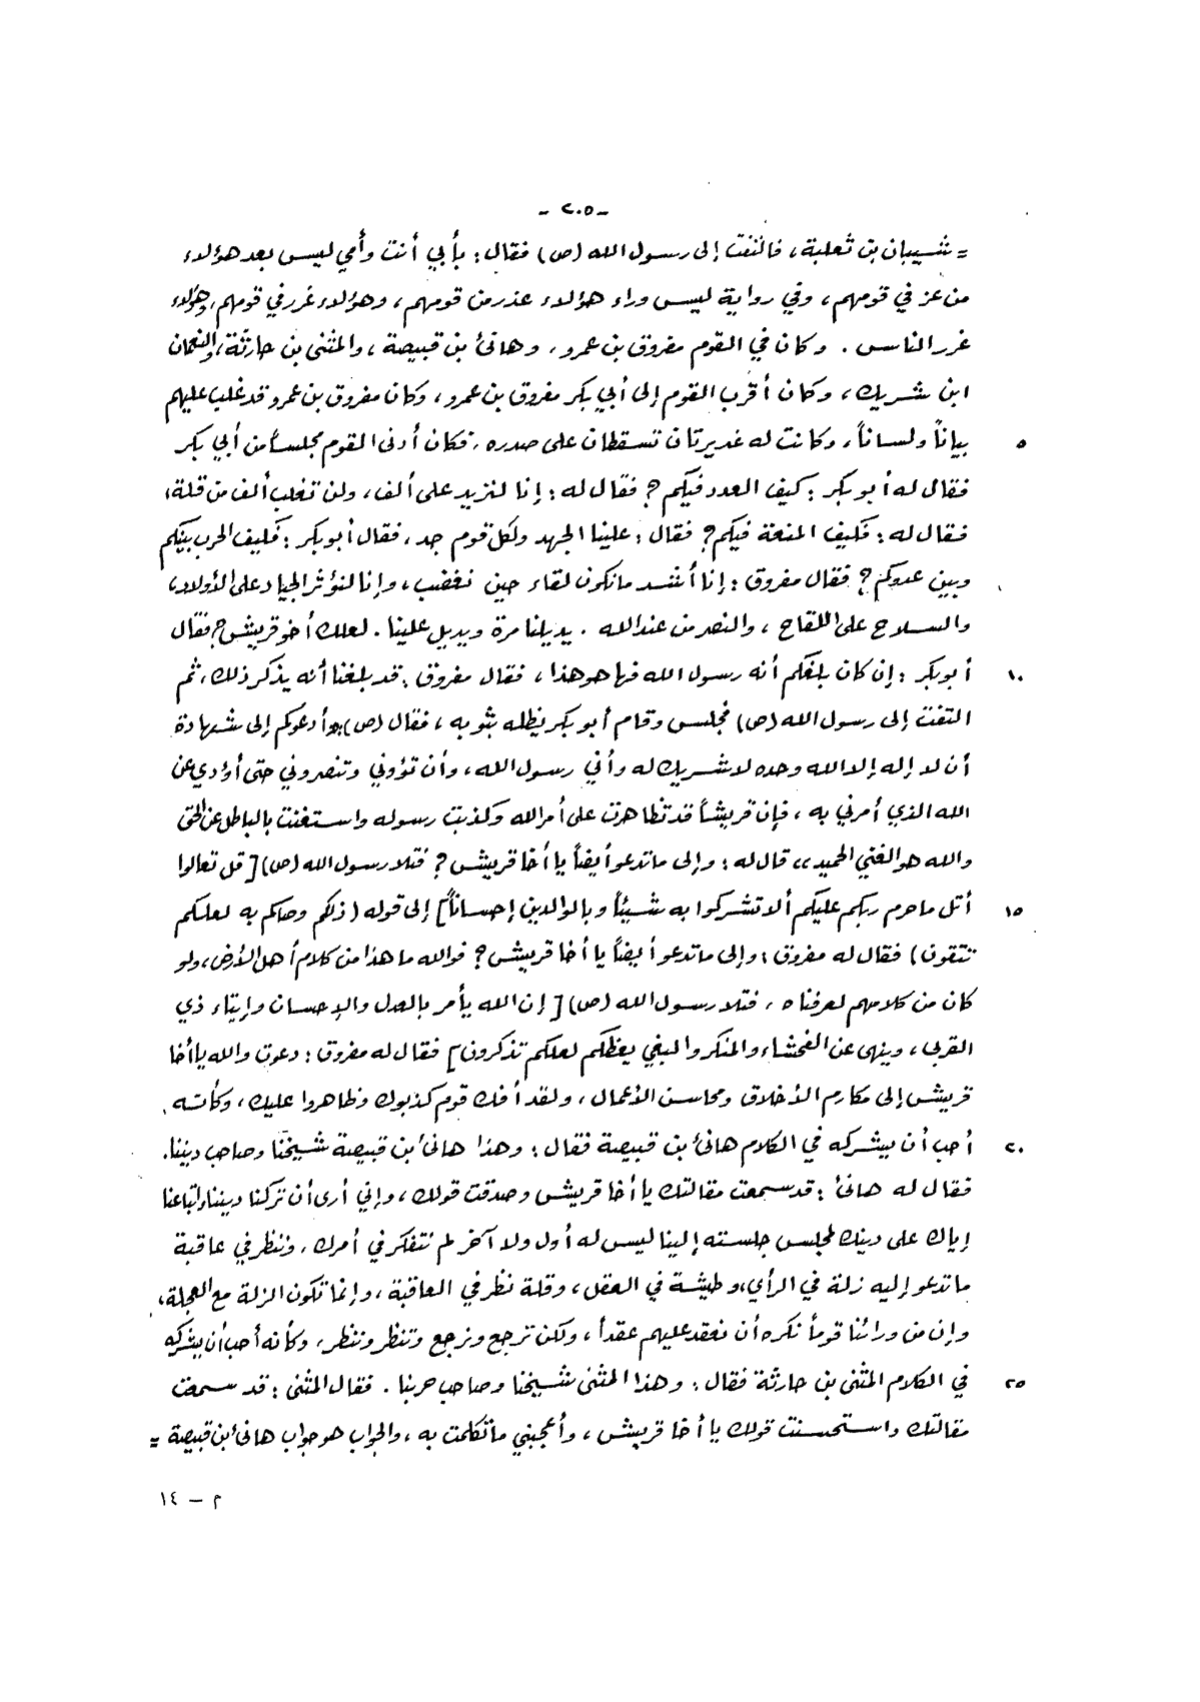 - ٢٠٥ -
= شيبان بن ثعلبة، فالتفت إلى رسول الله (ص) فقال: بأبي أنت وأمي ليس بعد هؤلاء
من عز في قومهم، وفي رواية ليس وراء هؤلاء عذر من قومهم، وهؤلاء غرر في قومهم، وهؤلاء
غرر الناس. وكان في القوم مفروق بن عمرو، وهانئ بن قبيصة، والمثنى بن حارثة، والنعمان
ابن شريك، وكان أقرب القوم إلى أبي بكر مفروق بن عمرو، وكان مفروق بن عمرو قد غلب عليهم
٥ بياناً ولساناً، وكانت له غديرتان تسقطان على صدره، فكان أدنى القوم مجلساً من أبي بكر
فقال له أبو بكر: كيف العدد فيكم؟ فقال له: إنا لنزيد على ألف، ولن تغلب ألف من قلة،
فقال له: فكيف المنعة فيكم؟ فقال: علينا الجهد ولكل قوم جد، فقال أبو بكر: فكيف الحرب بينكم
وبين عدوكم؟ فقال مفروق: إنا أشد ما نكون لقاء حين نغضب، وإنا لنؤثر الجياد على الأولاد،
والسلاح على اللقاح، والنصر من عند الله. يديلنا مرة ويديل علينا. لعلك أخو قريش؟ فقال
١٠ أبو بكر: إن كان بلغكم أنه رسول الله فها هو هذا، فقال مفروق: قد بلغنا أنه يذكر ذلك، ثم
التفت إلى رسول الله (ص) فجلس وقام أبو بكر يظله بثوبه، فقال (ص): «أدعوكم إلى شهادة
أن لا إله إلا الله وحده لا شريك له وأني رسول الله، وأن تؤوني وتنصروني حتى أؤدي عن
الله الذي أمرني به، فإن قريشاً قد تظاهرت على أمر الله وكذبت رسوله واستغنت بالباطل عن الحق
والله هو الغني الحميد،، قال له: وإلى ما تدعو أيضاً يا أخا قريش؟ فتلا رسول الله (ص) [قل تعالوا
١٥ أتل ما حرم ربكم عليكم ألا تشركوا به شيئاً وبالوالدين إحساناً] إلى قوله (ذلكم وصاكم به لعلكم
تتقون) فقال له مفروق: وإلى ما تدعو أيضاً يا أخا قريش؟ فوالله ما هذا من كلام أهل الأرض، ولو
كان من كلامهم لعرفناه، فتلا رسول الله (ص) [إن الله يأمر بالعدل والإحسان وإيتاء ذي
القربى، وينهى عن الفحشاء والمنكر والبغي يعظكم لعلكم تذكرون] فقال له مفروق: دعوت والله يا أخا
قريش إلى مكارم الأخلاق ومحاسن الأعمال، ولقد أفك قوم كذبوك وظاهروا عليك، وكأنه
٢٠ أحب أن يشركه في الكلام هانئ بن قبيصة فقال: وهذا هانئ بن قبيصة شيخنا وصاحب ديننا.
فقال له هانئ: قد سمعت مقالتك يا أخا قريش وصدقت قولك، وإني أرى أن تركنا ديننا واتباعنا
إياك على دينك لمجلس جلسته إلينا ليس له أول ولا آخر لم نتفكر في أمرك، وننظر في عاقبة
ما تدعو إليه زلة في الرأي، وطيشة في العقل، وقلة نظر في العاقبة، وإنما تكون الزلة مع العجلة،
وإن من ورائنا قوماً نكره أن نعقد عليهم عقداً، ولكن ترجع ونرجع وتنظر وننظر، وكأنه أحب أن يشركه
٢٥ في الكلام المثنى بن حارثة فقال: وهذا المثنى شيخنا وصاحب حربنا. فقال المثنى: قد سمعت
مقالتك واستحسنت قولك يا أخا قريش، وأعجبني ما تكلمت به، والجواب هو جواب هانئ بن قبيصة =
م - ١٤